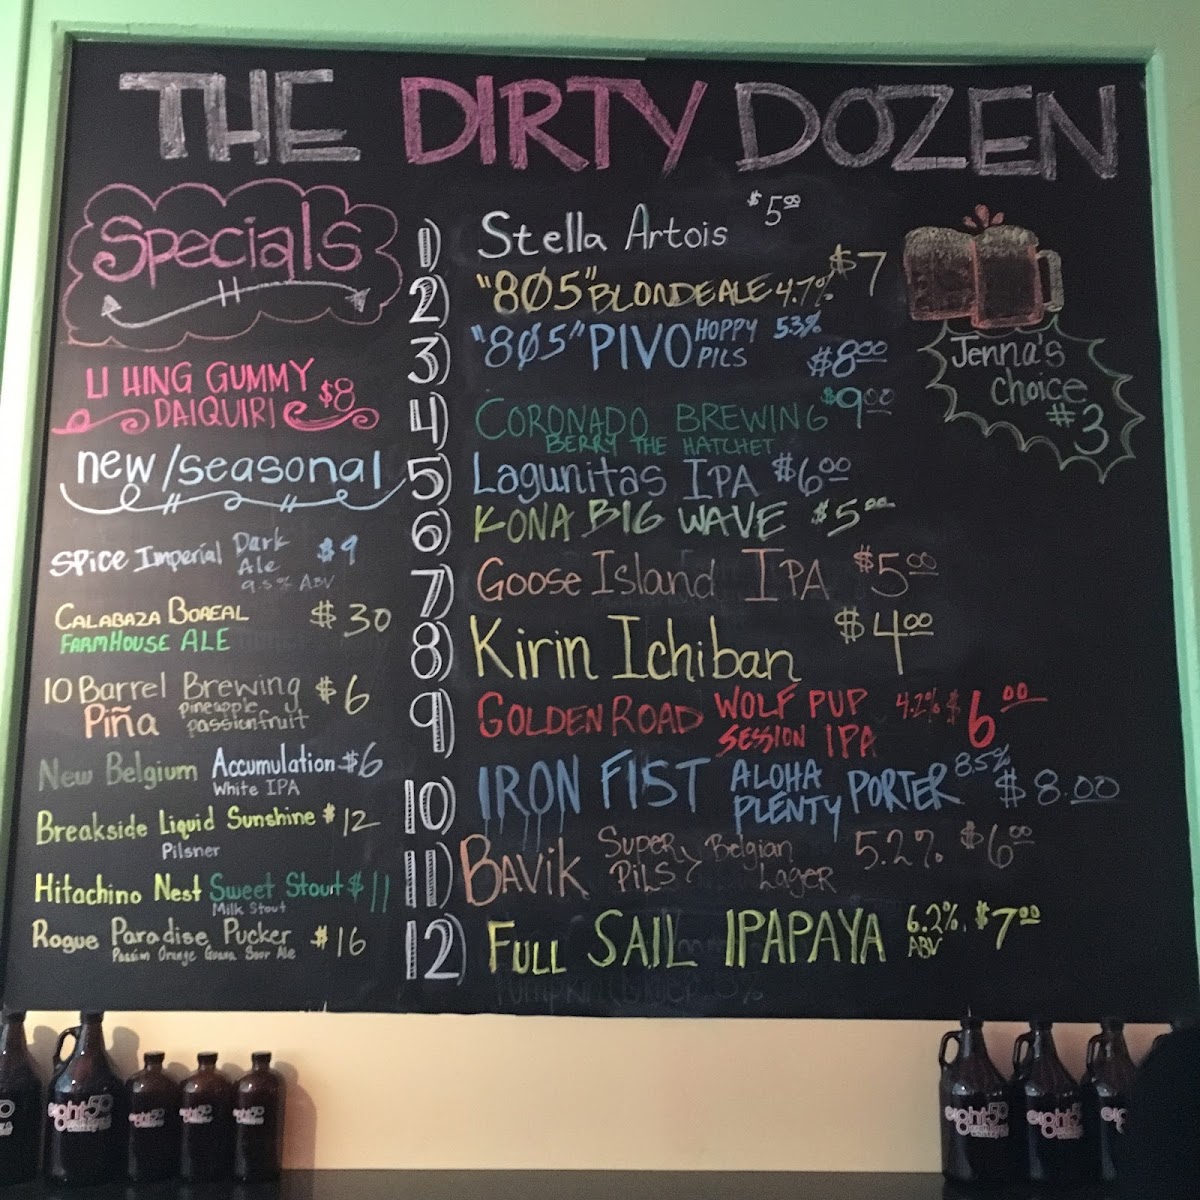 THE DIRTY DOZEN
Specials
LI HING GUMMY
DAIQUIRI $8
new/seasonal
Spice Imperial Dark
Ale $9
9.5% ABV
CALABAZA BOREAL $30
FARMHOUSE ALE
10 Barrel Brewing $6
Piña pineapple
passionfruit
New Belgium Accumulation $6
White IPA
Breakside Liquid Sunshine $12
Pilsner
Hitachino Nest Sweet Stout $11
Milk Stout
Rogue Paradise Pucker $16
Passion Orange Guava Sour Ale
1) Stella Artois $5.00
2) "805" BLONDE ALE 4.7% $7
3) "805" PIVO HOPPY 5.3%
PILS $8.00
4) CORONADO BREWING $9.00
BERRY THE HATCHET
5) Lagunitas IPA $6.00
6) KONA BIG WAVE $5.00
7) Goose Island IPA $5.00
8) Kirin Ichiban $4.00
9) GOLDEN ROAD WOLF PUP 4.2% $6.00
SESSION IPA
10) IRON FIST ALOHA PORTER 8.5% $8.00
PLENTY
11) BAVIK SUPER Belgian 5.2% $6.00
PILS Lager
12) FULL SAIL IPAPAYA 6.2% $7.00
ABV
Jenna's
choice
#3
eight50
eight50
eight50
eight50
eight50
eight50